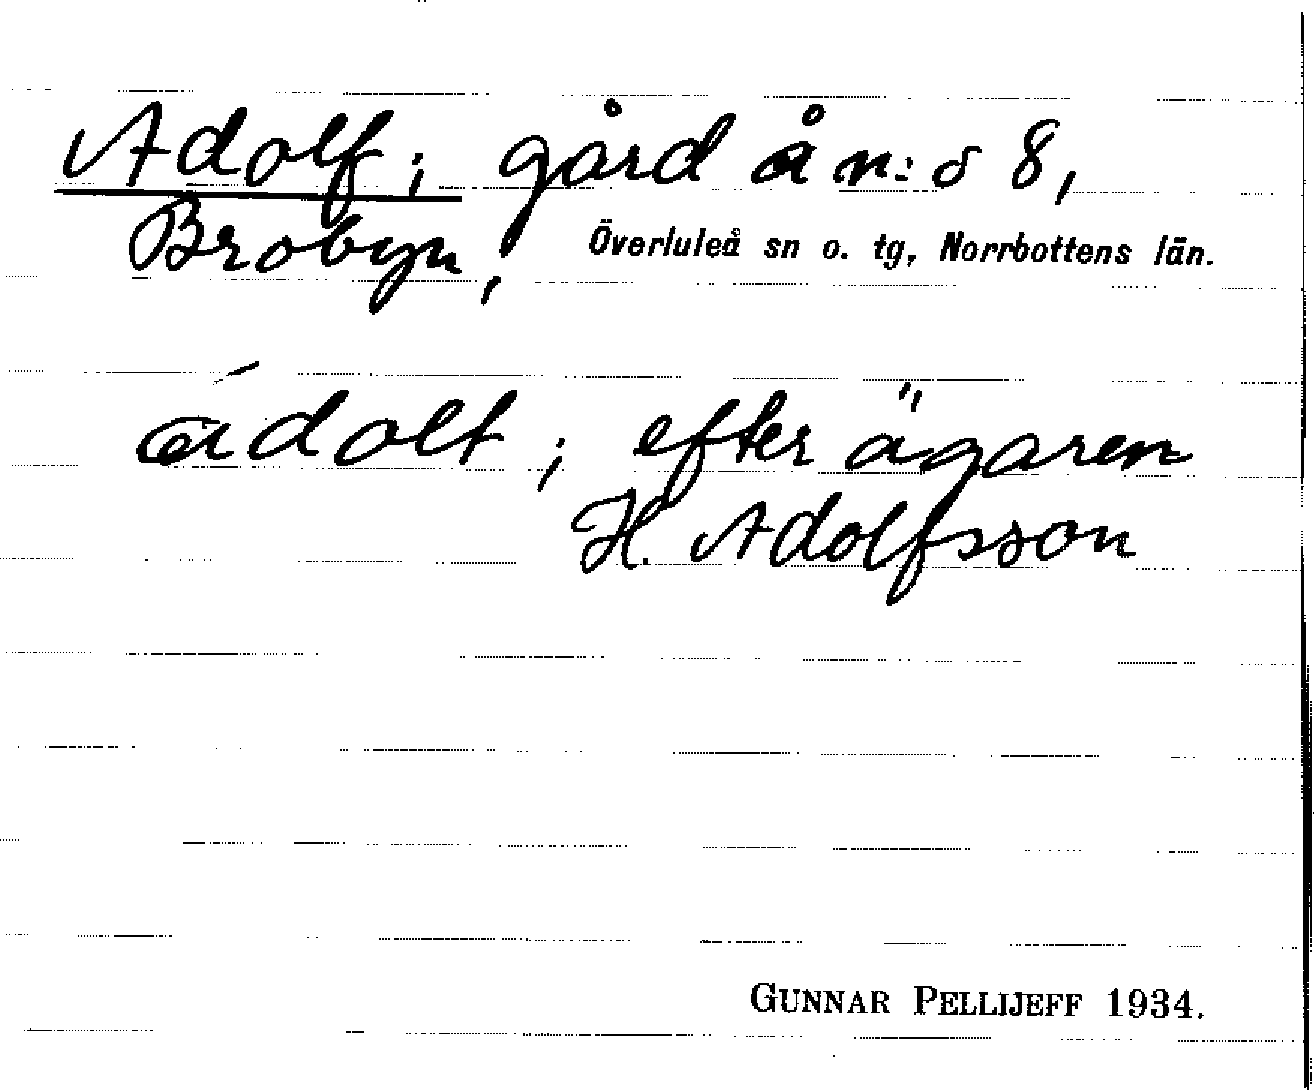 Adolf; gård å n:o 8,
Brobyn, Överluleå sn o. tg, Norrbottens län.
ádolt; efter ägaren
H. Adolfsson
GUNNAR PELLIJEFF 1934.